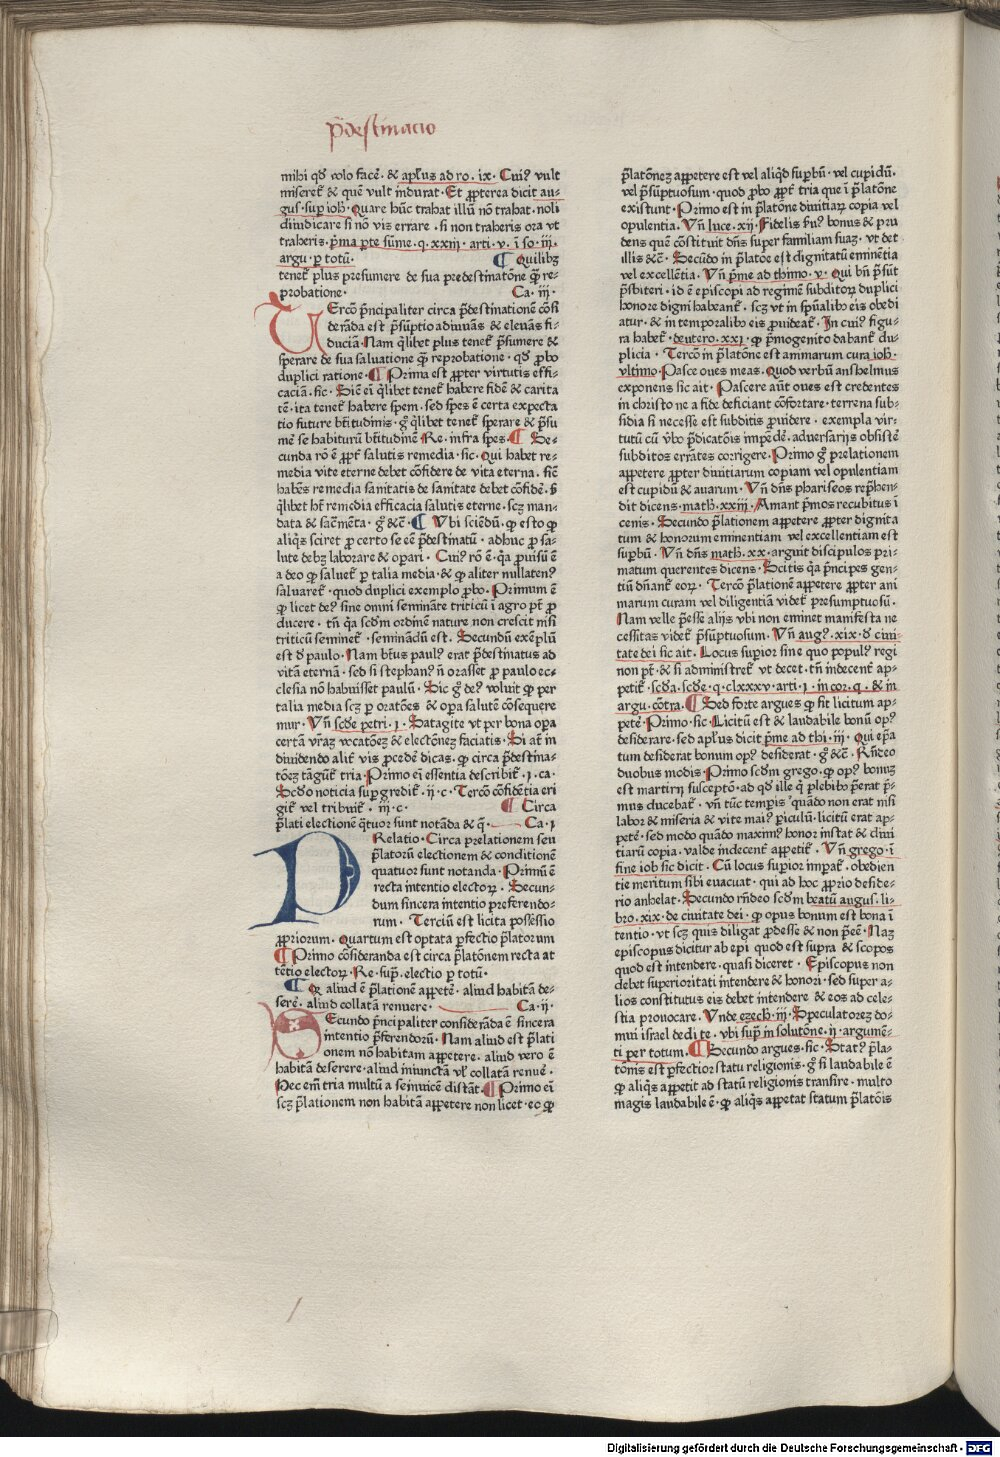 p̄destinacio
mihi qđ volo facē· & apl̄us ad ro· ix· Cui⁹ vult
miseret̄ & quē vult indurat· Et ꝓpterea dicit au-
gus· suꝑ ioh̄· Quare hūc trahat illū nō trahat· noli
diiudicare si nō vis errare· si non traheris ora vt
traheris· p̄ma ꝑte sūme· q· xxiii· arti· v· ī so· iii·
argu· ꝑ totū· ¶ Quilibꝫ
tenet̄ plus presumere de sua predestinatōne q̄ re-
probatione· Ca· iii·
TErcō p̄ncipaliter circa p̄destinationē cōsi
derāda est p̄sūptio adiuuās & eleuās fi-
duciā· Nam q̄libet plus tenet̄ p̄sumere &
sperare de sua saluatione q̄ reprobatione· qđ ꝓbo
duplici ratione· ¶ Prima est ꝓpter virtutis effi-
caciā· sic· Sicē ei q̄libet tenet̄ habere fidē & carita
tē· ita tenet̄ habere spem· sed spes ē certa expecta
tio future btītudinis· g̊ q̄libet tenet̄ sperare & p̄su
mē se habiturū btītudinē Re· infra spes· ¶ Se-
cunda rō ē ꝓpt̄ salutis remedia· sic· Qui habet re-
media vite eterne debet cōfidere de vita eterna· sicē
habēs remedia sanitatis de sanitate debet cōfidē· ß
q̄libet hꝫ remedia efficacia salutis eterne· scꝫ man-
data & sac̄mēta· g̊ &c̄· ¶ Vbi sciendū· ꝙ esto ꝙ
aliq̄s sciret ꝓ certo se eē p̄destinatū· adhuc ꝓ sa-
lute debꝫ laborare & oꝑari· Cui⁹ rō ē· q̄a ꝓuisū ē
a deo ꝙ saluet̄ ꝑ talia media· & ꝙ aliter nullaten⁹
saluaret̄· quod duplici exemplo ꝓbo· Primum ē
ꝙ licet de⁹ sine omni seminātе triticū ī agro pt̄ ꝓ
ducere· tn̄ q̄a scđm ordinē nature non crescit nisi
triticū seminet̄· seminādū est· Secundū exēplū
est đ paulo· Nam bt̄us paul⁹ erat p̄destinatus ad
vitā eternā· sed si stephan⁹ n̄ orasset ꝓ paulo ec-
clesia nō habuisset paulū· Sic g̊ de⁹ voluit ꝙ per
talia media scꝫ ꝑ oratōes & oꝑa salutē cōsequere
mur· Vn̄ scđe petri· i· Satagite vt per bona oꝑa
certā vr̄aꝫ vocatōeꝫ & electōneꝫ faciatis· Si at̄ in
diuidendo alit̄ vis ꝓcedē dicas· ꝙ circa p̄destina-
tōeꝫ tāgūt̄ tria· Primo ei essentia describit̄· i· ca·
Scđo noticia suꝑgredit̄· ii· c· Tercō cōfidētia eri
git̄ vel tribuit̄· iii· c· ¶ Circa
p̄lati electionē q̄tuor sunt notāda & q̄· Ca· i
PRelatio· Circa prelationem seu
p̄latorū electionem & conditionē
quatuor sunt notanda· Primū ē
recta intentio electoꝝ· Secun-
dum sincera intentio preferendo-
rum· Terciū est licita possessio
ꝓpriorum· Quartum est optata ꝑfectio p̄latorum
¶ Primo cōsideranda est circa p̄latōnem recta at
tētio electoꝝ· Re· suꝑ· electio ꝑ totū·
¶ Qꝫ aliud ē p̄lationē aꝑpetē· aliud habitā de-
serē· aliud collatā renuere· Ca· ii·
SEcundo p̄ncipaliter considerāda ē sincera
intentio p̄ferendorū· Nam aliud est p̄lati
onem nō habitam aꝑpetere· aliud vero ē
habitā deserere· aliud iniunctā vl̄ collatā renuē·
Hec em̄ tria multū a seiuicē distāt· ¶ Primo ei
scꝫ p̄lationem non habitā aꝑpetere non licet· eo ꝙ
p̄latōneꝫ aꝑpetere est vel aliqđ suꝑbū· vel cupidū·
vel p̄sūptuosum· quod ꝓbo ꝓpt̄ tria que ī p̄latōne
existunt· Primo est in p̄latōne diuitiaꝝ copia vel
opulentia· Vn̄ luce· xij· Fidelis fu⁹ bonus & pru
dens quē cōstituit dn̄s super familiam suaꝫ· vt det
illis &c̄· Secūdo in p̄latōe est dignitatū eminētia
vel excellētia· Vn̄ p̄me ad thimo· v· Qui bn̄ p̄sūt
p̄sbiteri· id ē episcopi ad regimē subditoꝝ duplici
honore digni habeant̄· scꝫ vt in sp̄ualibꝰ eis obedi
atur· & in temporalibꝰ eis ꝓuideat̄· In cui⁹ figu-
ra habet̄· deutero· xxi· ꝙ p̄mogenito dabant̄ du-
plicia· Tercō in p̄latōne est animarum cura ioh̄·
vltimo· Pasce oues meas· Quod verbū anshelmus
exponens sic ait· Pascere aūt oues est credentes
in christo ne a fide deficiant cōfortare· terrena sub-
sidia si necesse est subditis ꝓuidere· exempla vir-
tutū cū v̄bo p̄dicatōis impēdē· aduersarijs obsistē
subditos errātes corrigere· Primo g̊ prelationem
aꝑpetere ꝓpter diuitiarum copiam vel opulentiam
est cupidū & auarum· Vn̄ dn̄s phariseos rep̄hen-
dit dicens· math· xxiij· Amant p̄mos recubitus ī
cenis· Secundo p̄lationem aꝑpetere ꝓpter dignita
tum & honorum eminentiam vel excellentiam est
suꝑbū· Vn̄ dn̄s math· xx· arguit discipulos pri-
matum querentes dicens· Scitis q̄a p̄ncipes gen-
tiū dn̄ant̄ eoꝝ· Tercō p̄lationē aꝑpetere ꝓpter ani
marum curam vel diligentiā videt̄ presumptuosū·
Nam velle p̄esse alijs vbi non eminet manifesta ne
cessitas videt̄ p̄sūptuosum· Vn̄ aug⁹· xix· đ ciui-
tate dei sic ait· Locus suꝑior sine quo popul⁹ regi
non pt̄· & si administret̄ vt decet· tn̄ indecent̄ aꝑ-
petit̄· scđa· scđe· q· clxxxv· arti· i· in cor· q· & in
argu· cōtra· ¶ Sed forte argues ꝙ sit licitum aꝑ-
petē· Primo· sic· Licitū est & laudabile bonū op⁹
desiderare· sed apl̄us dicit p̄me ad thi· iii· Qui ep̄a
tum desiderat bonum op⁹ desiderat· g̊ &c̄· Rn̄deo
duobus modis· Primo scđm grego· ꝙ op⁹ bonuꝫ
est martirij susceptō· ad qđ ille q̄ plebibꝰ p̄erat p̄-
mus ducebat̄· vn̄ tūc tempīs quādo non erat nisi
labor & miseria & vite mai⁹ ꝑiculū· licitū erat aꝑ-
petē· sed modo quādo maxim⁹ honor instat & diui
tiarū copia· valde indecent̄ aꝑpetit̄· Vn̄ grego· ī
fine iob sic dicit· Cū locus suꝑior impat̄· obedien
tie meritum sibi euacuat· qui ad hoc ꝓprio deside-
rio anhelat· Secundo rn̄deo scđm beatū augus· li-
bro· xix· de ciuitate dei· ꝙ opus bonum est bona ī
tentio· vt scꝫ quis diligat ꝓdesse & non p̄eē· Naꝫ
episcopus dicitur ab epi quod est supra & scopos
quod est intendere· quasi diceret· Episcopus non
debet superioritati intendere & honori· sed super a-
lios constitutus eis debet intendere & eos ad cele-
stia prouocare· Vnde ezech· iij· Speculatoreꝫ do-
mui israel dedi te· vbi suꝑ in solutōne· ij· argumē-
ti per totum· ¶ Secundo argues· sic· Stat⁹ p̄la-
tōnis est ꝑfectior statu religionis· g̊ si laudabile ē
ꝙ aliq̄s aꝑpetit ad statū religionis transire· multo
magis laudabile ē· ꝙ aliq̄s aꝑpetat statum p̄latōis
Digitalisierung gefördert durch die Deutsche Forschungsgemeinschaft - DFG